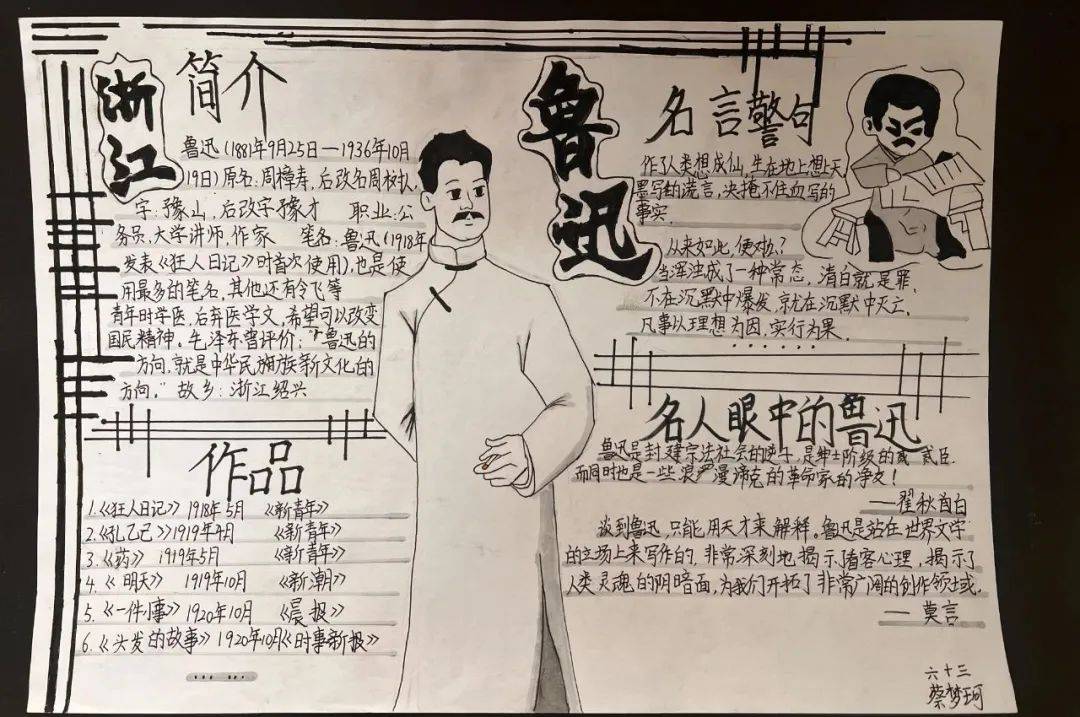 浙江
简介
鲁迅(1881年9月25日—1936年10月
19日)原名:周樟寿,后改名周树人,
字:豫山,后改字豫才 职业:公
务员,大学讲师,作家 笔名:鲁迅(1918年
发表《狂人日记》时首次使用),也是使
用最多的笔名,其他还有令飞等
青年时学医,后弃医学文,希望可以改变
国民精神。毛泽东曾评价:"鲁迅的
方向,就是中华民族新文化的
方向。" 故乡:浙江绍兴
作品
1.《狂人日记》 1918年5月 《新青年》
2.《孔乙己》 1919年4月 《新青年》
3.《药》 1919年5月 《新青年》
4.《明天》 1919年10月 《新潮》
5.《一件小事》 1920年10月 《晨报》
6.《头发的故事》 1920年10月《时事新报》
......
鲁迅
名言警句
作了人类想成仙,生在地上想上天
墨写的谎言,决掩不住血写的
事实.
从来如此,便对么?
当浑浊成了一种常态,清白就是罪.
不在沉默中爆发,就在沉默中灭亡.
凡事以理想为因,实行为果.
......
名人眼中的鲁迅
鲁迅是封建宗法社会的逆子,是绅士阶级的贰臣.
而同时也是一些浪漫谛克的革命家的诤友!
—瞿秋白
谈到鲁迅,只能用天才来解释。鲁迅是站在世界文学
的立场上来写作的,非常深刻地揭示了看客心理,揭示了
人类灵魂的阴暗面,为我们开拓了非常广阔的创作领域.
—莫言
六十三
蔡梦珂